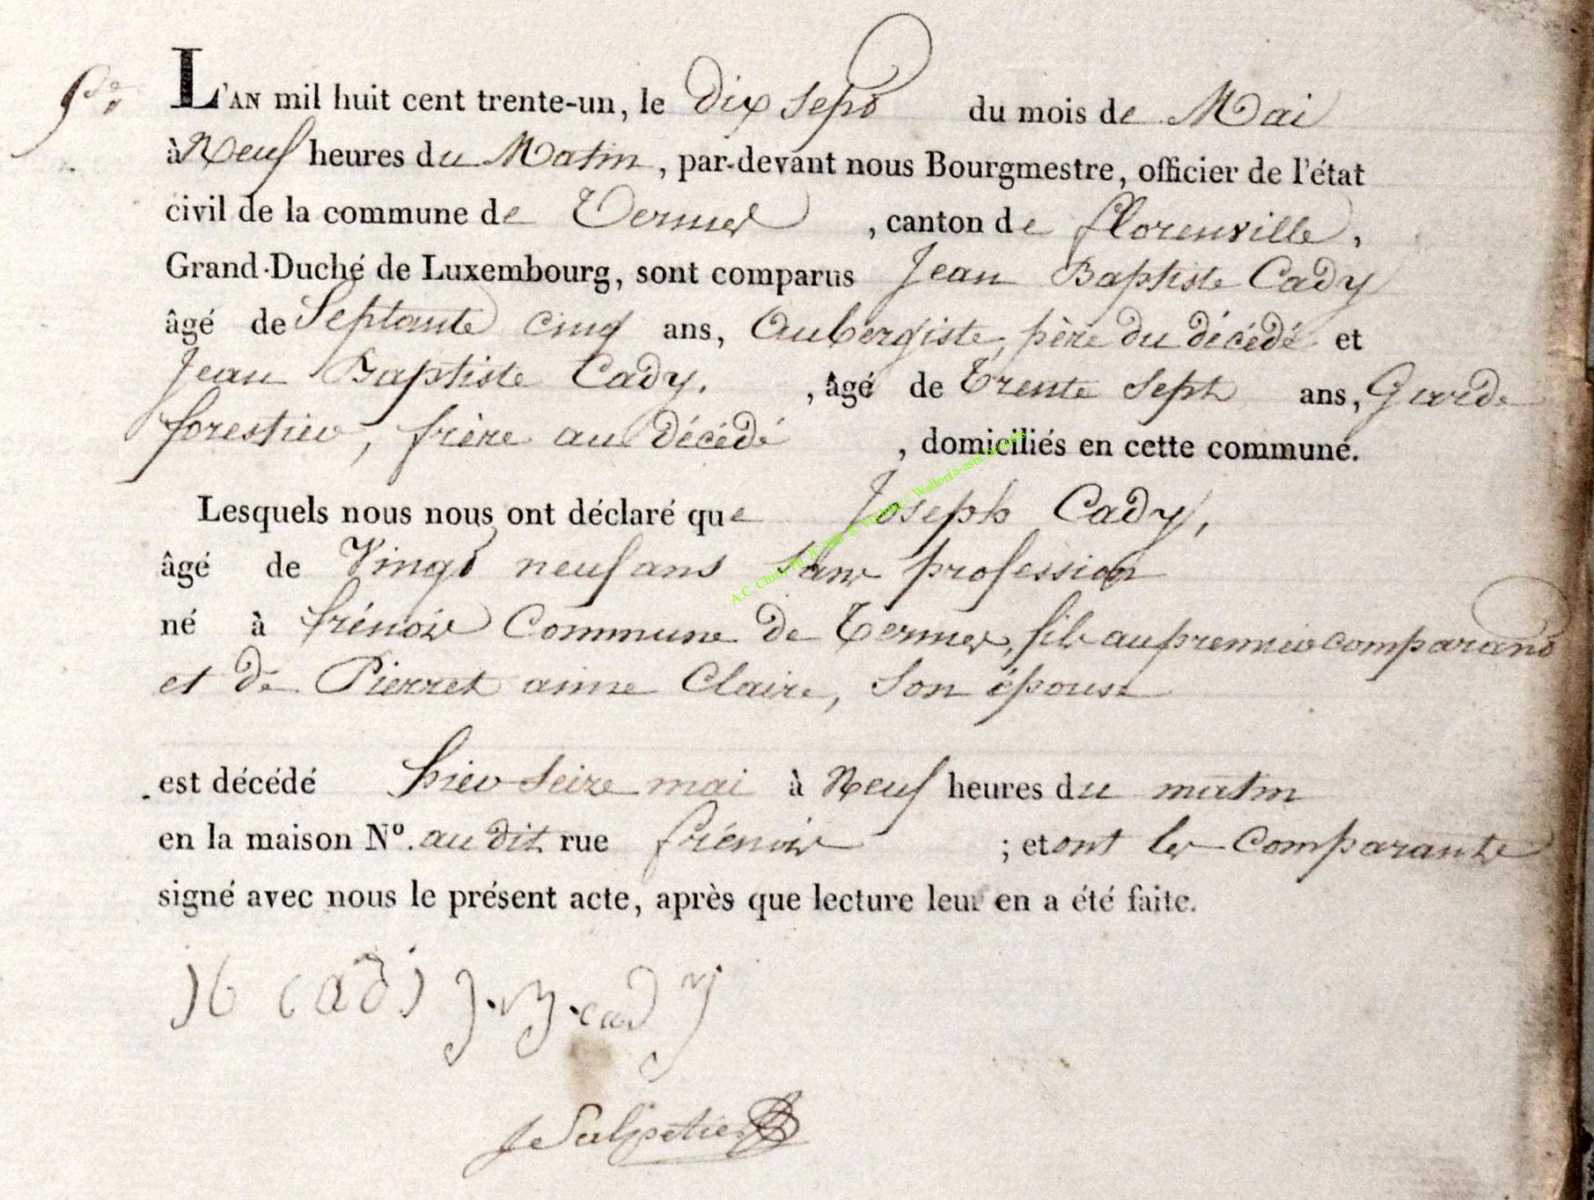 L'AN mil huit cent trente-un, le dix sept du mois de Mai
à Neuf heures du Matin, par-devant nous Bourgmestre, officier de l'état
civil de la commune de Termes, canton de florenville,
Grand-Duché de Luxembourg, sont comparus Jean Baptiste Cady
âgé de Septante cinq ans, Aubergiste, père du décédé et
Jean Baptiste Cady. , âgé de Trente Sept ans, Garde
forestier, frère au décédé , domiciliés en cette commune.
Lesquels nous nous ont déclaré que Joseph Cady,
âgé de Vingt neuf ans Sans profession
né à frénois Commune de Termes, fils au premier comparant
et de Pierret anne Claire, Son épouse
est décédé hier Seize mai à Neuf heures du matin
en la maison N°. audit rue frénois ; et ont les Comparants
signé avec nous le présent acte, après que lecture leur en a été faite.
J b cadi J. B. cady